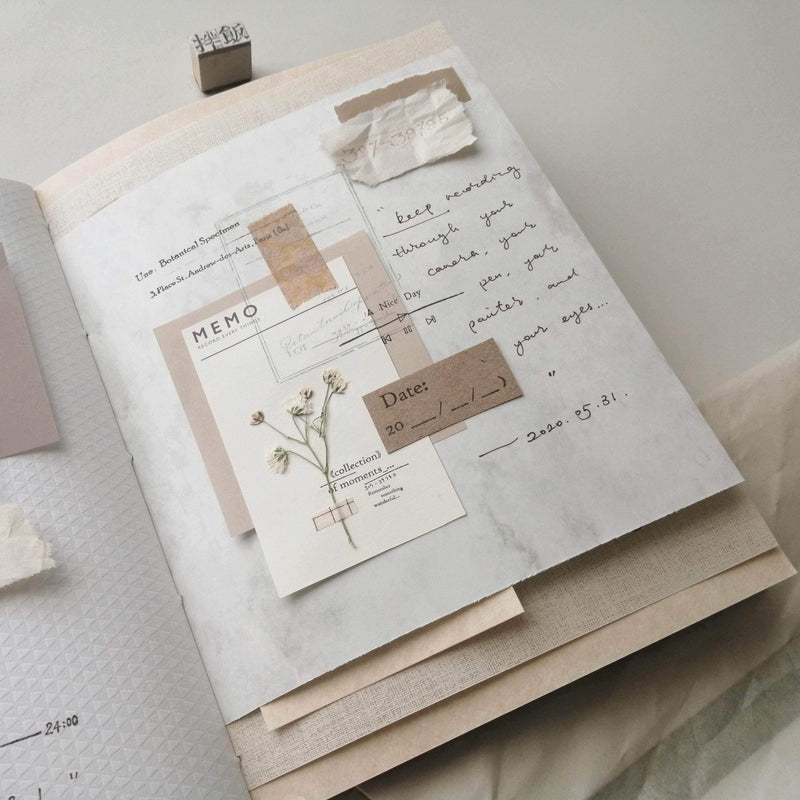 拌飯
" keep recording
through your
camera, your
pen, your
painter, and
your eyes...
"
— 2020. 05. 31.
Une. Botanical Specimen
3, Place St. Andrew-des-Arts,
MEMO
RECORD EVERY THINGS
LOT
Nice Day
Date:
20 __/__/__)
《collection》
of moments_...
Remember
something
wonderful...
— 24:00
"